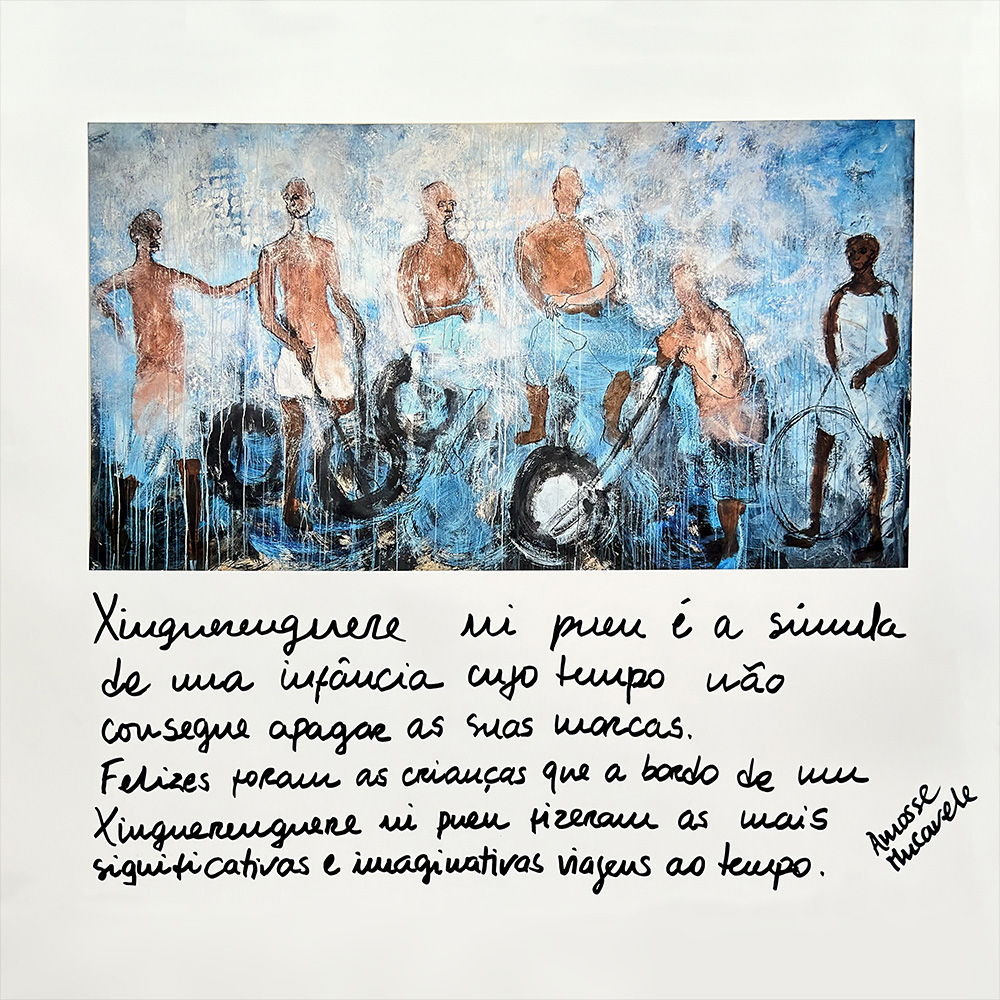 Xinguerenguere ni pneu é a súmula
de uma infância cujo tempo não
consegue apagar as suas marcas.
Felizes foram as crianças que a bordo de um
Xinguerenguere ni pneu fizeram as mais
significativas e imaginativas viagens ao tempo.
Amosse
Mucavele